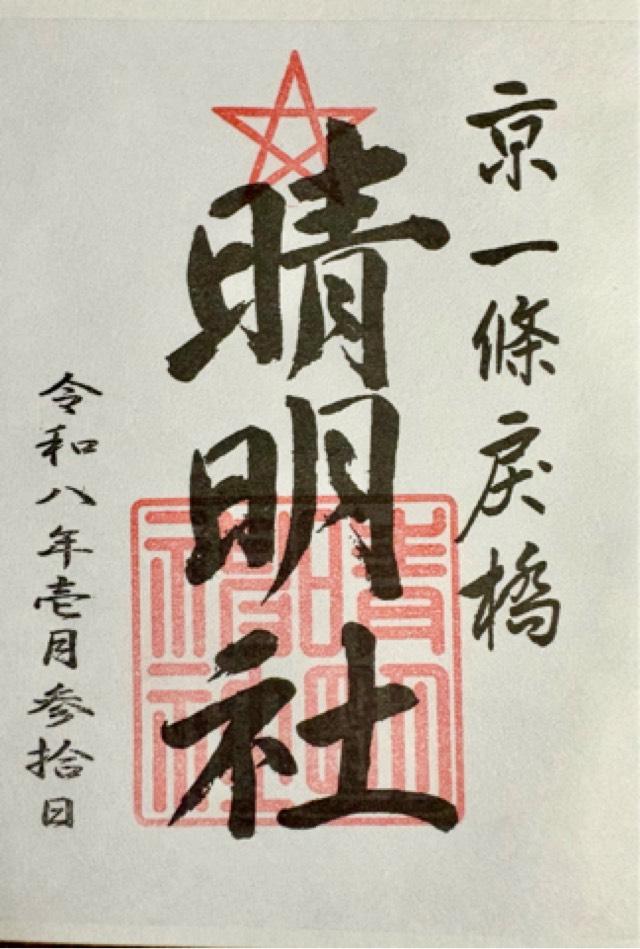 京一條戻橋
晴明社
令和八年壱月参拾日
晴明
神社